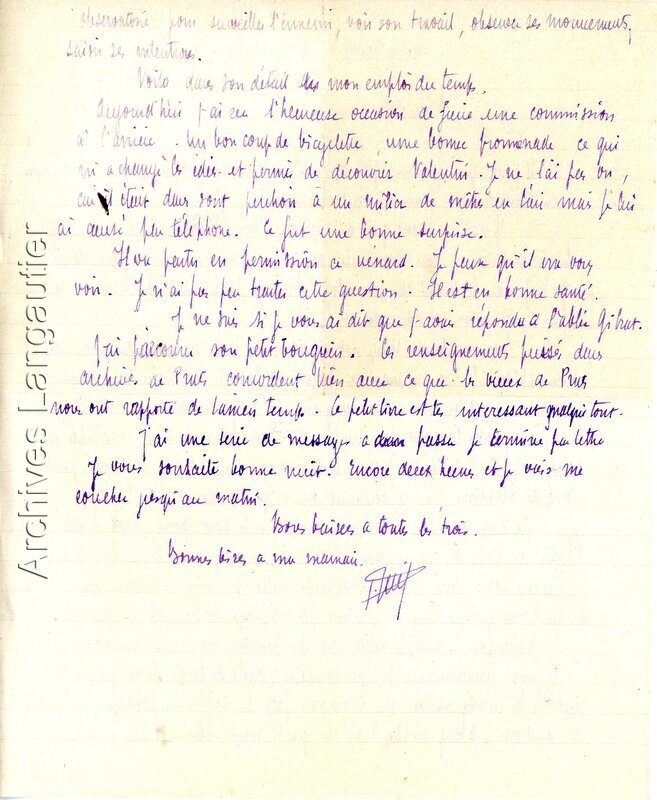 observatoire pour surveiller l'ennemi, voir son travail, observer ses mouvements,
saisir ses intentions.
Voila dans son détail mon emploi du temps.
Aujourd'hui j'ai eu l'heureuse occasion de faire une commission
à l'arrière. Un bon coup de bicyclette, une bonne promenade ce qui
m'a changé les idées et permis de découvrir Valentin. Je ne l'ai pas vu,
car il était dans sont perchoir à un millier de mètres en l'air mais je lui
ai causé par téléphone. Ce fut une bonne surprise.
Il va partir en permission ce vénard. Je pense qu'il ira vous
voir. Je n'ai pas pu traiter cette question. Il est en bonne santé.
Je ne sais si je vous ai dit que j'avais répondu à l'abbé Gibrat.
J'ai parcouru son petit bouquin. Les renseignements puisés dans
archives de Prats concordent bien avec ce que les vieux de Prats
nous ont rapporté de l'ancien temps. Ce petit livre est très interessant malgré tout.
J'ai une série de messages a passer je termine par lettre
Je vous souhaite bonne nuit. Encore deux heures et je vais me
coucher jusqu'au matin.
Bons baisers a toutes les trois.
Bonnes bises a ma maman.
Archives Langautier